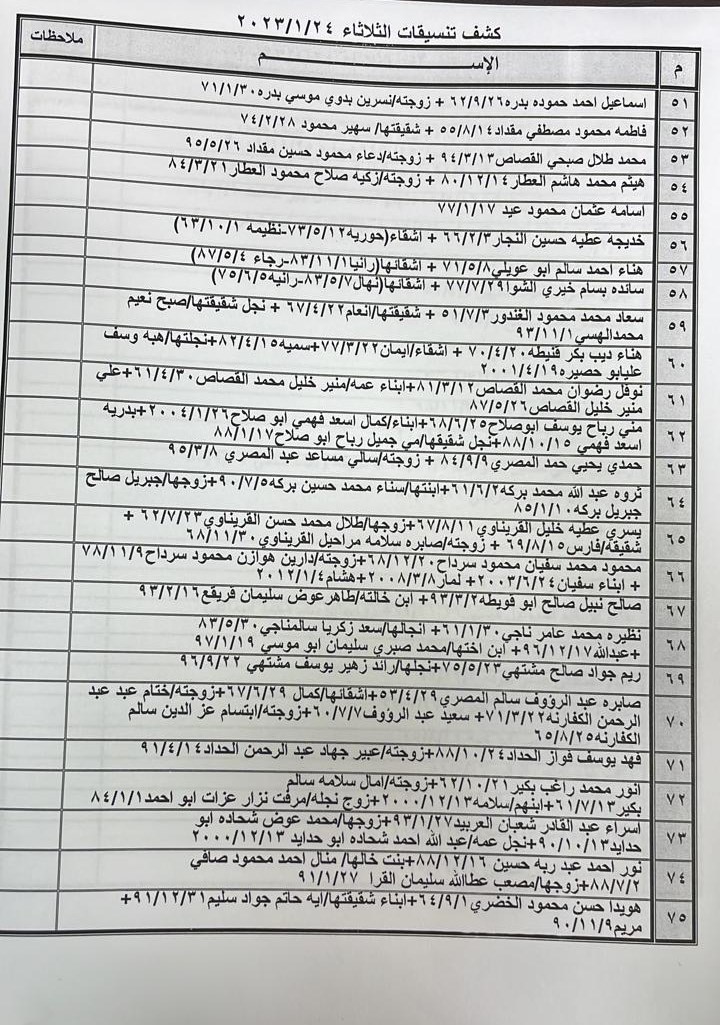 كشف تنسيقات الثلاثاء ٢٠٢٣/١/٢٤
م الإســــــم ملاحظات
٥١ اسماعيل احمد حموده بدره٦٢/٩/٢٦ + زوجته/نسرين بدوي موسي بدره٧١/١/٣٠
٥٢ فاطمه محمود مصطفي مقداد٥٥/٨/١٤ + شقيقتها/ سهير محمود ٧٤/٢/٢٨
٥٣ محمد طلال صبحي القصاص٩٤/٣/١٣ + زوجته/دعاء محمود حسين مقداد ٩٥/٥/٢٦
٥٤ هيثم محمد هاشم العطار٨٠/١٢/١٤ + زوجته/زكيه صلاح محمود العطار٨٤/٣/٢١
٥٥ اسامه عثمان محمود عيد ٧٧/١/١٧
٥٦ خديجه عطيه حسين النجار٦٦/٢/٣ + اشقاء(حوريه٧٣/٥/١٢-نظيمه ٦٣/١٠/١)
٥٧ هناء احمد سالم ابو عويلي٧١/٥/٨ + اشقائها(رانيا٨٣/١١/١-رجاء ٨٧/٥/٤)
٥٨ سانده بسام خيري الشوا٧٧/٧/٢٩ + اشقائها(نهال٨٣/٥/٧-رانيه٧٥/٦/٥)
٥٩ سعاد محمد محمود الغندور٥١/٧/٣ + شقيقتها/انعام٦٧/٤/٢٢ + نجل شقيقتها/صبح نعيم
محمدالهسي٩٣/١١/١
٦٠ هناء ديب بكر قنيطه٧٠/٤/٢٠ + اشقاء/ايمان٧٧/٣/٢٢+سميه٨٢/٤/١٥+نجلتها/هبه وسف
عليابو حصيره٢٠٠١/٤/١٩
٦١ نوفل رضوان محمد القصاص٨١/٣/١٢+ابناء عمه/منير خليل محمد القصاص٦١/٤/٣٠+علي
منير خليل القصاص٨٧/٥/٢٦
٦٢ مني رباح يوسف ابوصلاح٦٨/٦/٢٥+ابناء/كمال اسعد فهمي ابو صلاح٢٠٠٤/١/٢٦+بدريه
اسعد فهمي ٨٨/١٠/١٥+نجل شقيقها/مي جميل رباح ابو صلاح٨٨/١/١٧
٦٣ حمدي يحيي حمد المصري٨٤/٩/٩ + زوجته/سالي مساعد عبد المصري ٩٥/٣/٨
٦٤ ثروه عبد الله محمد بركه٦١/٦/٢+ابنتها/سناء محمد حسين بركه٩٠/٧/٥+زوجها/جبريل صالح
جبريل بركه٨٥/١/١٠
٦٥ يسري عطيه خليل القريناوي٦٧/٨/١١+زوجها/طلال محمد حسن القريناوي٦٢/٧/٢٣ +
شقيقه/فارس٦٩/٨/١٥ + زوجته/صابره سلامه مراحيل القريناوي٦٨/١١/٣٠
٦٦ محمود محمد سفيان محمود سرداح٦٨/١٢/٢٠+زوجته/دارين هوازن محمود سرداح٧٨/١١/٩
+ ابناء سفيان٢٠٠٣/٦/٢٤+ لمار٢٠٠٨/٣/٨+هشام٢٠١٢/١/٤
٦٧ صالح نبيل صالح ابو فويطه٩٣/٣/٢+ ابن خالته/طاهرعوض سليمان فريقع٩٣/٢/١٦
٦٨ نظيره محمد عامر ناجي٦١/١/٣٠+ انجالها/سعد زكريا سالمناجي٨٣/٥/٣٠
+عبدالله٩٦/١٢/١٧+ ابن اختها/محمد صبري سليمان ابو موسي ٩٧/١/١٩
٦٩ ريم جواد صالح مشتهي٧٥/٥/٢٣+نجلها/رائد زهير يوسف مشتهي ٩٦/٩/٢٢
٧٠ صابره عبد الرؤوف سالم المصري٥٣/٤/٢٩+اشقائها/كمال ٦٧/٦/٢٩+زوجته/ختام عبد عبد
الرحمن الكفارنه٧١/٣/٢٢+ سعيد عبد الرؤوف٦٠/٧/٧+زوجته/ابتسام عز الدين سالم
الكفارنه٦٥/٨/٢٥
٧١ فهد يوسف فواز الحداد٨٨/١٠/٢٤+زوجته/عبير جهاد عبد الرحمن الحداد٩١/٤/١٤
٧٢ انور محمد راغب بكير٦٢/١٠/٢١+زوجته/امال سلامه سالم
بكير٦١/٧/١٣+ابنهم/سلامه٢٠٠٠/١٢/١٣+زوج نجله/مرفت نزار عزات ابو احمد٨٤/١/١
٧٣ اسراء عبد القادر شعبان العربيد٩٣/١/٢٧+زوجها/محمد عوض شحاده ابو
حدايد٩٠/١٠/١٣+نجل عمه/عبد الله احمد شحاده ابو حدايد ٢٠٠٠/١٢/١٣
٧٤ نور احمد عبد ربه حسين ٨٨/١٢/١٦+بنت خالها/ منال احمد محمود صافي
٨٨/٧/٢+زوجها/مصعب عطاالله سليمان القرا ٩١/١/٢٧
٧٥ هويدا حسن محمود الخضري٦٤/٩/١+ابناء شقيقتها/ايه حاتم جواد سليم٩١/١٢/٣١+
مريم٩٠/١١/٩